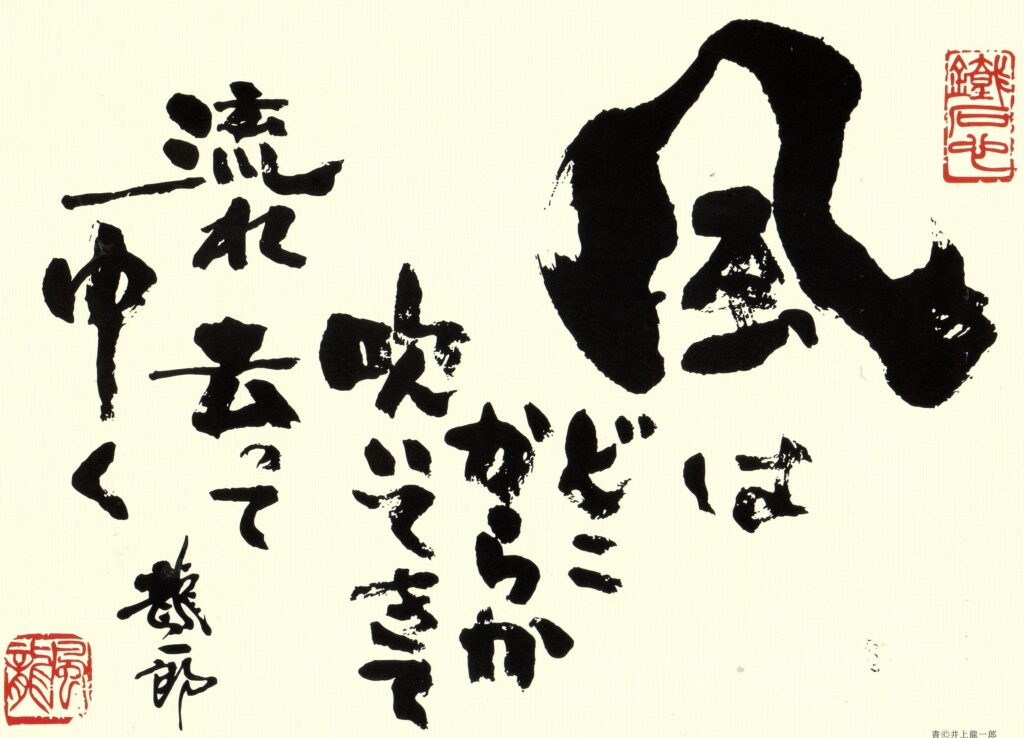 風は
どこ
からか
吹いてきて
流れ去って
ゆく
龍一郎
鐵石心
風龍
書©井上龍一郎